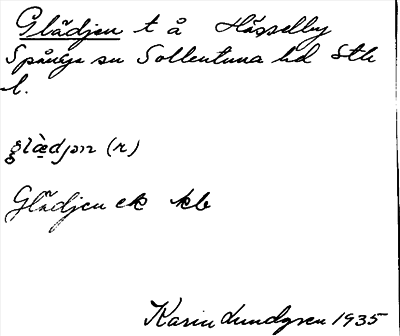 Glädjen t å Hässelby
Spånga sn Sollentuna hd Sth
l.
glædjən (r)
Glädjen ek kb
Karin Lundgren 1935